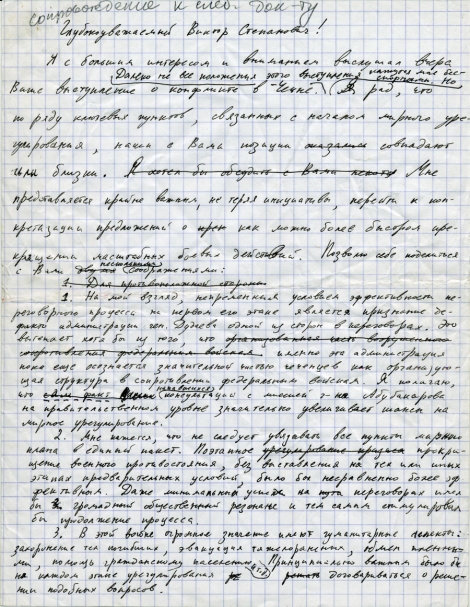 сопровождение к след. док-ту
Глубокоуважаемый Виктор Степанович!
Я с большим интересом и вниманием выслушал вчера
Далеко не все положения этого выступления кажутся мне бесспорными. Но
Ваше выступление о конфликте в Чечне. Я рад, что
по ряду ключевых пунктов, связанных с началом мирного уре-
гулирования, наши с Вами позиции оказались совпадают
или близки. Я хотел бы обсудить с Вами Мне
представляется крайне важным, не теряя инициативы, перейти к кон-
кретизации предложений о как можно более быстром пре-
кращении масштабных боевых действий. Позволю себе поделиться
с Вами несколькими соображениями:
1. Для противоположной стороны
1. На мой взгляд, непременным условием эффективности пе-
реговорного процесса на первом его этапе является признание де-
факто администрации ген. Дудаева одной из сторон в переговорах. Это
вытекает хотя бы из того, что организованная часть вооруженного
сопротивления федеральным войскам именно эта администрация
пока еще осознается значительной частью чеченцев как организую-
щая структура в сопротивлении федеральным войскам. Я полагаю,
что сам факт начавшиеся консультации с миссией г-на Абубакарова
на правительственном уровне значительно увеличивает шансы на
мирное урегулирование.
2. Мне кажется, что не следует увязывать все пункты мирного
плана в единый пакет. Поэтапное урегулирование прекра-
щение военного противостояния, без выставления на тех или иных
этапах предварительных условий, было бы несравненно более эф-
фективным. Даже минимальный успех на переговорах имел
бы громадный общественный резонанс и тем самым стимулировал
бы продолжение процесса.
3. В этой войне огромное значение имеют гуманитарные аспекты:
захоронение тел погибших, эвакуация тяжелоранения, обмен пленны-
ми, помощь гражданскому населению и т.д. Принципиально важным было бы
на каждом этапе урегулирования договариваться о реше-
нии подобных вопросов.